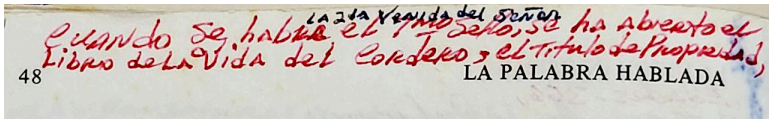 LA 2da Venida del SEÑOR
CUANDO Se habre el 7mo Sello, Se ha Abierto el
Libro de La Vida del Cordero, el Titulo de Propiedad,
48 LA PALABRA HABLADA